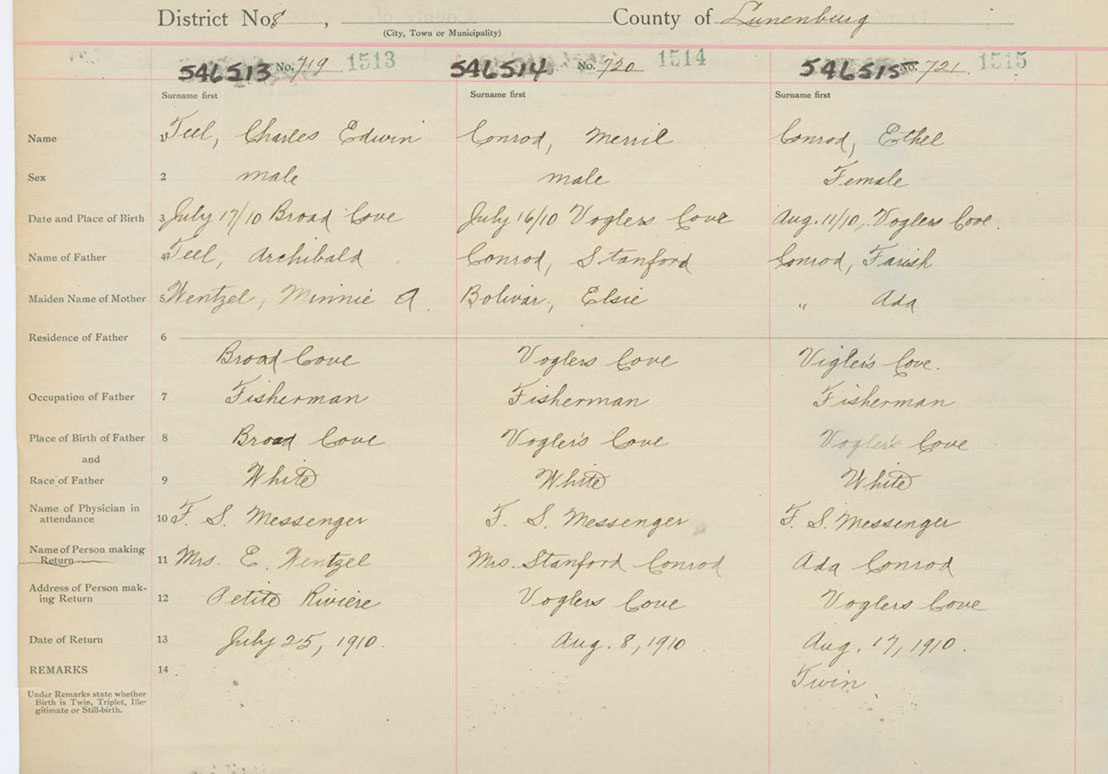 District No. 8, County of Lunenburg
(City, Town or Municipality)
546513 No. 719 1513 546514 No. 720 1514 546515 No. 721 1515
Surname first Surname first Surname first
Name 1 Teel, Charles Edwin Conrad, Merril Conrad, Ethel
Sex 2 male male Female
Date and Place of Birth 3 July 17/10 Broad Cove July 16/10 Voglers Cove Aug. 11/10, Voglers Cove.
Name of Father 4 Teel, Archibald Conrad, Stanford Conrad, Farish
Maiden Name of Mother 5 Wentzel, Minnie A. Bolivar, Elsie " Ada
Residence of Father 6
Broad Cove Voglers Cove Vigler's Cove.
Occupation of Father 7 Fisherman Fisherman Fisherman
Place of Birth of Father 8 Broad Cove Vogler's Cove Vogler's Cove
and
Race of Father 9 White White White
Name of Physician in
attendance 10 F. S. Messenger F. S. Messenger F. S. Messenger
Name of Person making
Return 11 Mrs. E. Wentzel Mrs. Stanford Conrad Ada Conrad
Address of Person mak-
ing Return 12 Petite Riviere Voglers Cove Voglers Cove
Date of Return 13 July 25, 1910. Aug. 8, 1910 Aug. 17, 1910.
REMARKS 14 Twin
Under Remarks state whether
Birth is Twin, Triplet, Ille-
gitimate or Still-birth.